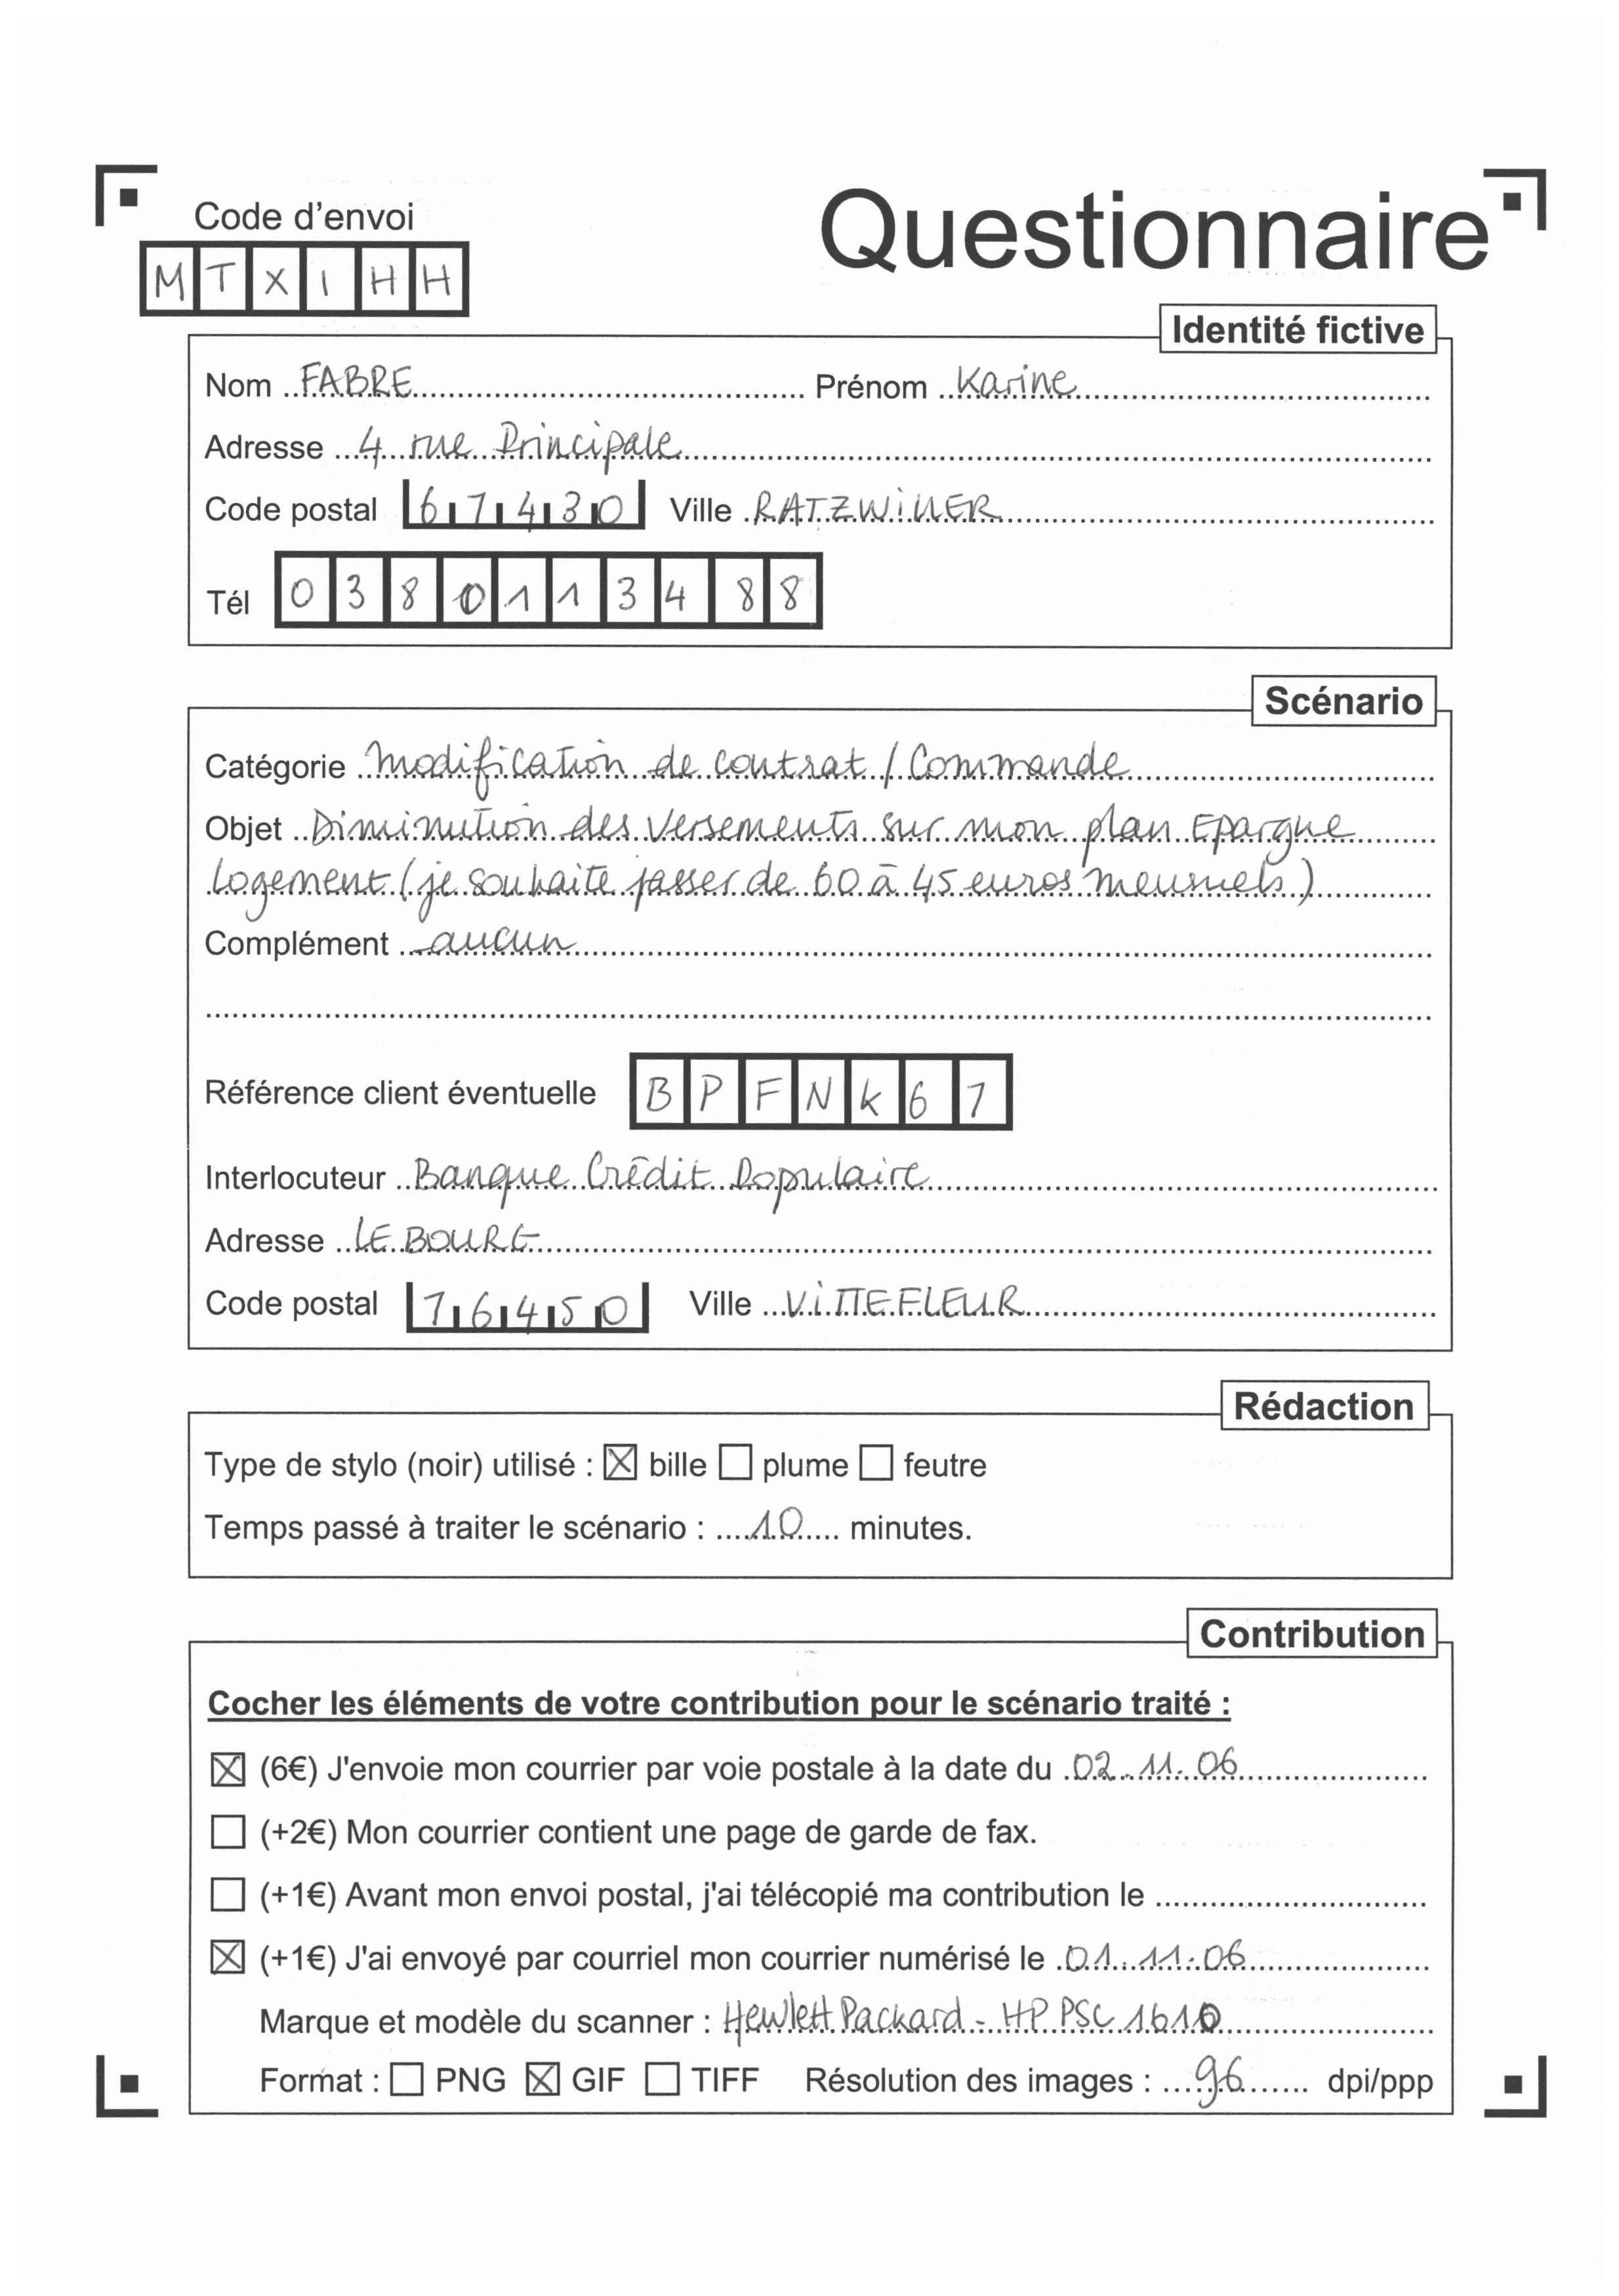 Code d'envoi
MTXIHH
Questionnaire
Identité fictive
Nom FABRE Prénom Karine
Adresse 4 rue Principale
Code postal 67430 Ville RATZWiLLER
Tél 0380113488
Scénario
Catégorie Modification de contrat / Commande
Objet Diminution des versements sur mon plan Epargne
Logement (je souhaite passer de 60 à 45 euros mensuels)
Complément aucun
Référence client éventuelle BPFNK67
Interlocuteur Banque Crédit Populaire
Adresse LE BOURG
Code postal 76450 Ville ViTTEFLEUR
Rédaction
Type de stylo (noir) utilisé : ☒ bille ☐ plume ☐ feutre
Temps passé à traiter le scénario : 10 minutes.
Contribution
Cocher les éléments de votre contribution pour le scénario traité :
☒ (6€) J'envoie mon courrier par voie postale à la date du 02.11.06
☐ (+2€) Mon courrier contient une page de garde de fax.
☐ (+1€) Avant mon envoi postal, j'ai télécopié ma contribution le
☒ (+1€) J'ai envoyé par courriel mon courrier numérisé le 01.11.06
Marque et modèle du scanner : Hewlett Packard - HP PSC 1610
Format : ☐ PNG ☒ GIF ☐ TIFF Résolution des images : 96 dpi/ppp